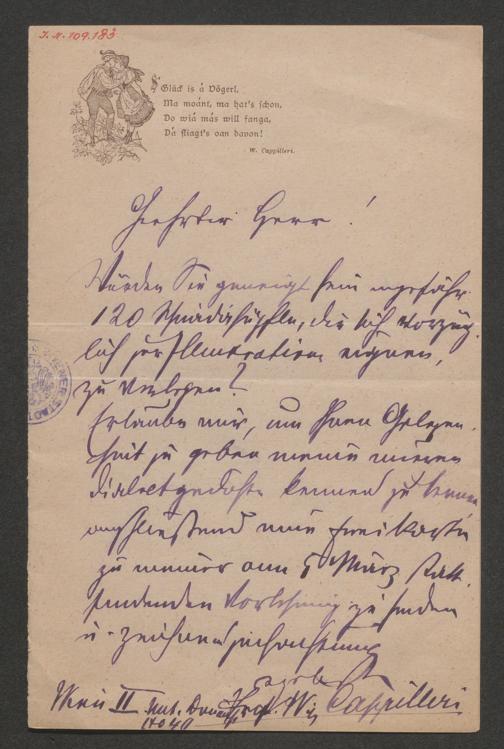 I. N. 109.183
Glück is á Vögerl,
Ma moánt, ma hat's schon,
Do wiá más will fanga,
Dá fliagt's oan davon!
W. Cappilleri.
Geehrter Herr!
Würden Sie geneigt sein ungefähr
120 die sich vorzüg-
lich zur Illustration eignen,
zu verlegen?
Erlaube mir, um Ihnen Gelegen-
heit zu geben meine neueren
Dialectgedichte kennen zu lernen
anschließend eine Freikarte
zu meiner am 5 März statt-
findenden Vorlesung zu senden
u. zeichne hochachtung
W. Cappilleri
Wien II